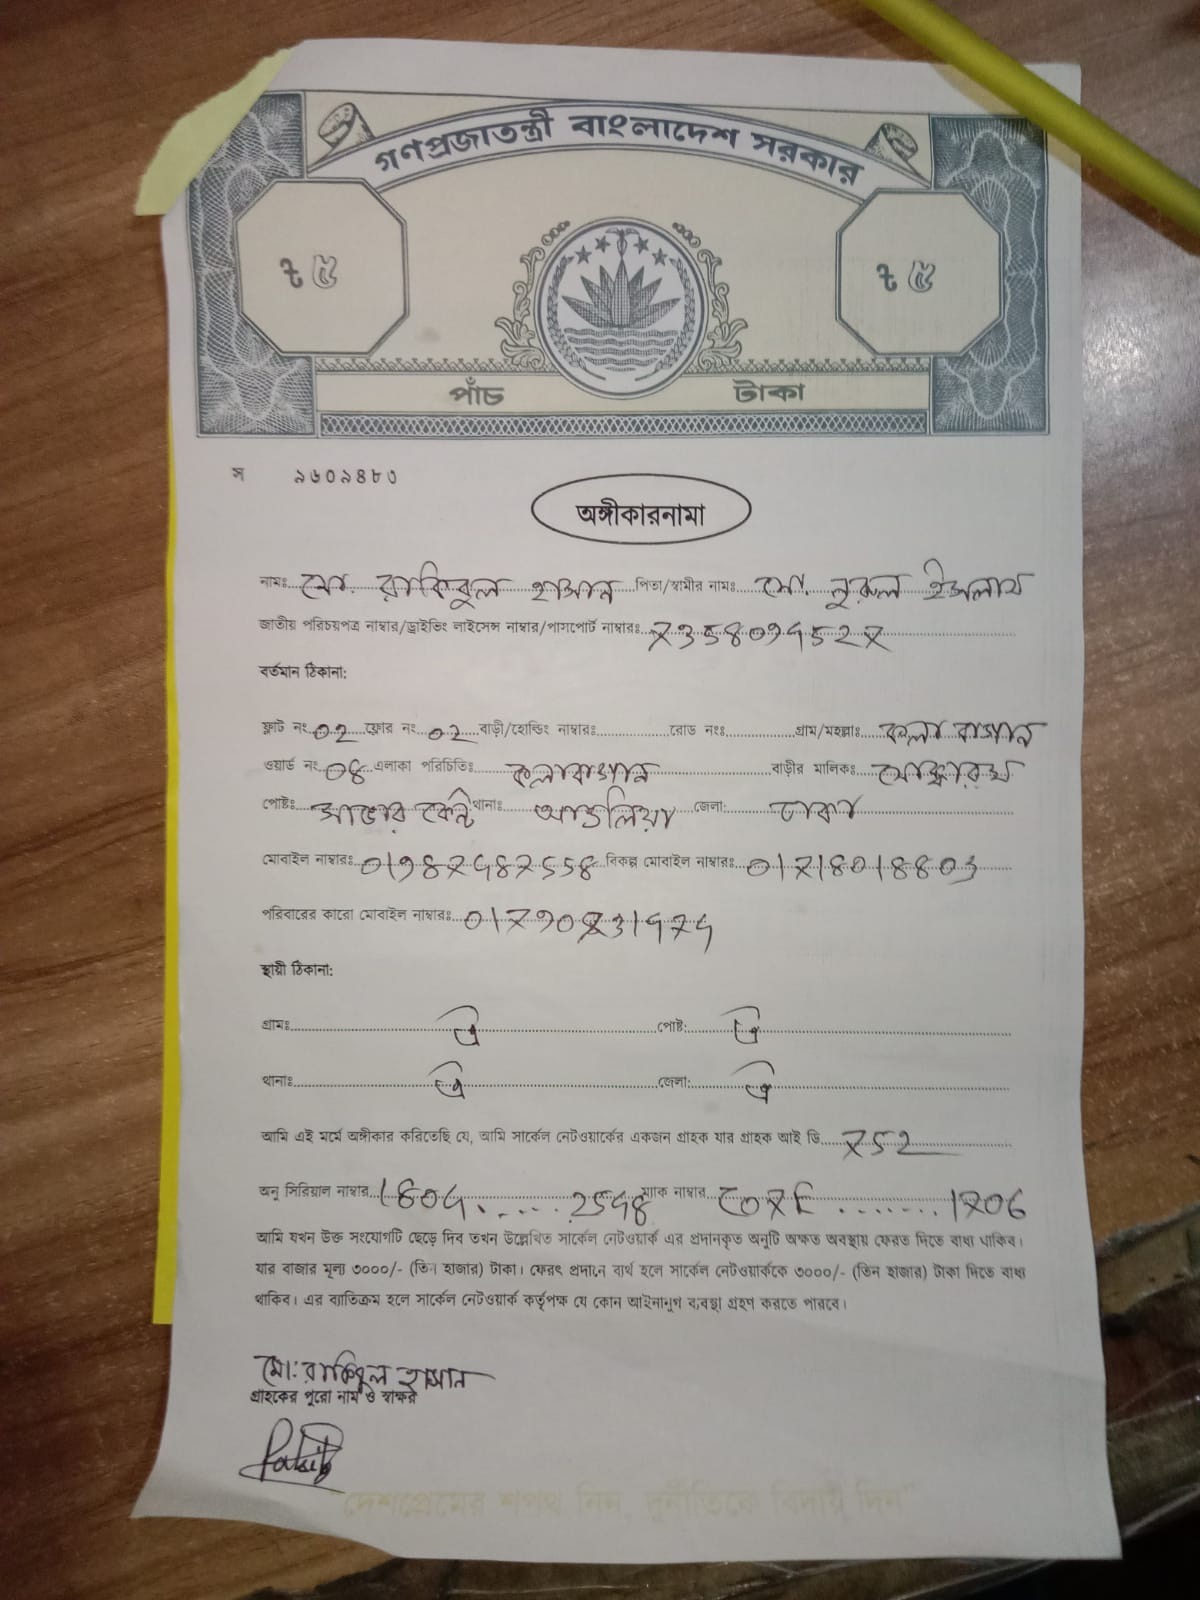 গণপ্রজাতন্ত্রী বাংলাদেশ সরকার
৳ ৫ ৳ ৫
পাঁচ টাকা
স ৯৬০৯৪৮৩
অঙ্গীকারনামা
নামঃ মো. রাকিবুল হাসান পিতা/স্বামীর নামঃ মো. নুরুল ইসলাম
জাতীয় পরিচয়পত্র নাম্বার/ড্রাইভিং লাইসেন্স নাম্বার/পাসপোর্ট নাম্বারঃ
বর্তমান ঠিকানা:
ফ্লাট নং 02 ফ্লোর নং 02 বাড়ী/হোল্ডিং নাম্বারঃ রোড নংঃ গ্রাম/মহল্লাঃ কলা বাগান
ওয়ার্ড নং 04 এলাকা পরিচিতিঃ কলাবাগান বাড়ীর মালিকঃ
পোষ্টঃ সাভার কেন্ট থানাঃ আশুলিয়া জেলা: ঢাকা
মোবাইল নাম্বারঃ বিকল্প মোবাইল নাম্বারঃ
পরিবারের কারো মোবাইল নাম্বারঃ
স্থায়ী ঠিকানা:
গ্রামঃ ঐ পোষ্ট: ঐ
থানাঃ ঐ জেলা: ঐ
আমি এই মর্মে অঙ্গীকার করিতেছি যে, আমি সার্কেল নেটওয়ার্কের একজন গ্রাহক যার গ্রাহক আই ডি 752
অনু সিরিয়াল নাম্বার ম্যাক নাম্বার
আমি যখন উক্ত সংযোগটি ছেড়ে দিব তখন উল্লেখিত সার্কেল নেটওয়ার্ক এর প্রদানকৃত অনুটি অক্ষত অবস্থায় ফেরত দিতে বাধ্য থাকিব।
যার বাজার মূল্য ৩০০০/- (তিন হাজার) টাকা। ফেরৎ প্রদানে ব্যর্থ হলে সার্কেল নেটওয়ার্ককে ৩০০০/- (তিন হাজার) টাকা দিতে বাধ্য
থাকিব। এর ব্যতিক্রম হলে সার্কেল নেটওয়ার্ক কর্তৃপক্ষ যে কোন আইনানুগ ব্যবস্থা গ্রহণ করতে পারবে।
মো: রাকিবুল হাসান
গ্রাহকের পুরো নাম ও স্বাক্ষর
Rakib
"দেশপ্রেমের শপথ নিন, দুর্নীতিকে বিদায় দিন"